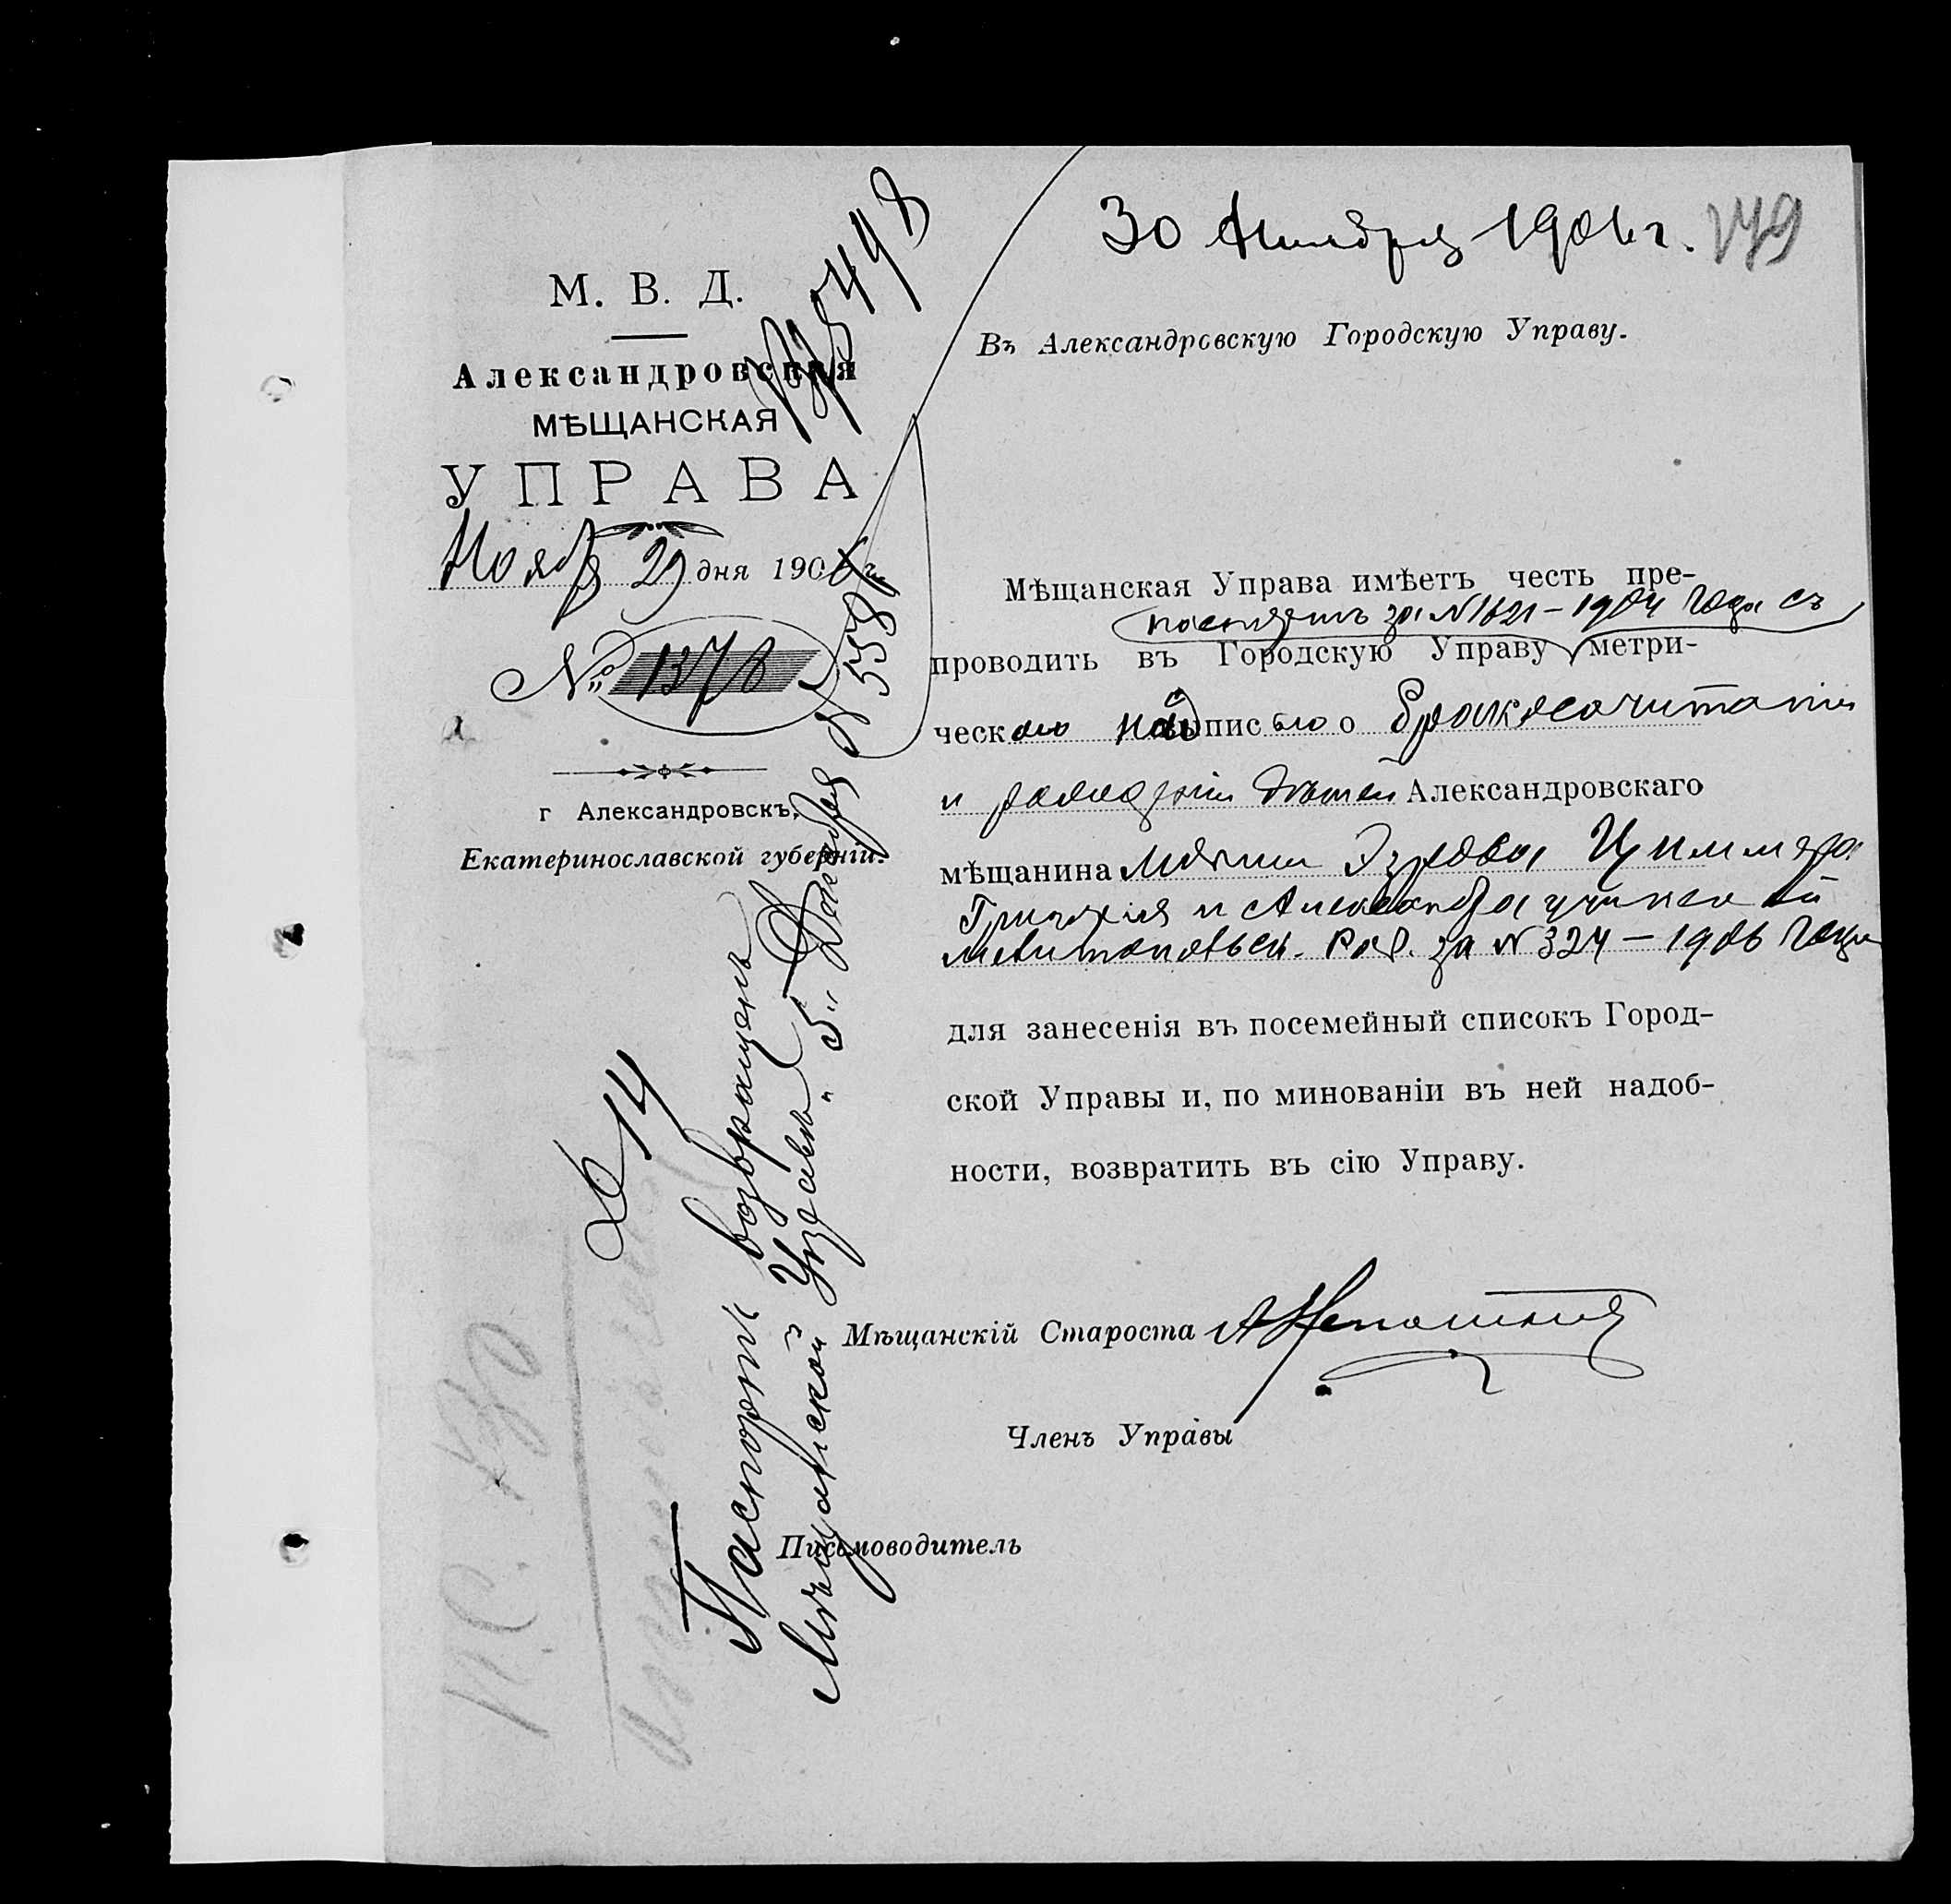 30 Ноября 1906 г. 179
М. В. Д.
Александровская
МѢЩАНСКАЯ
УПРАВА
Нояб 29 дня 1906 г.
№ 1378
г Александровскъ,
Екатеринославской губерніи.
Въ Александровскую Городскую Управу.
Мѣщанская Управа имѣетъ честь пре-
паспортъ за № 1621 – 1904 года съ
проводить въ Городскую Управу метри-
ческою надписью о бракосочитаніи
и рожденіи дѣтей Александровскаго
мѣщанина Эзрова Циммера
Григорія и Александра учинен ой
Мелитопольск. Рав. за № 324 – 1906 года
для занесенія въ посемейный списокъ Город-
ской Управы и, по минованіи въ ней надоб-
ности, возвратить въ сію Управу.
Мѣщанскій Староста
Членъ Управы
Письмоводитель
Паспортъ возвращенъ
Мѣщанской Управѣ „5" Декабря
№ 5588
5498
14
П.С.